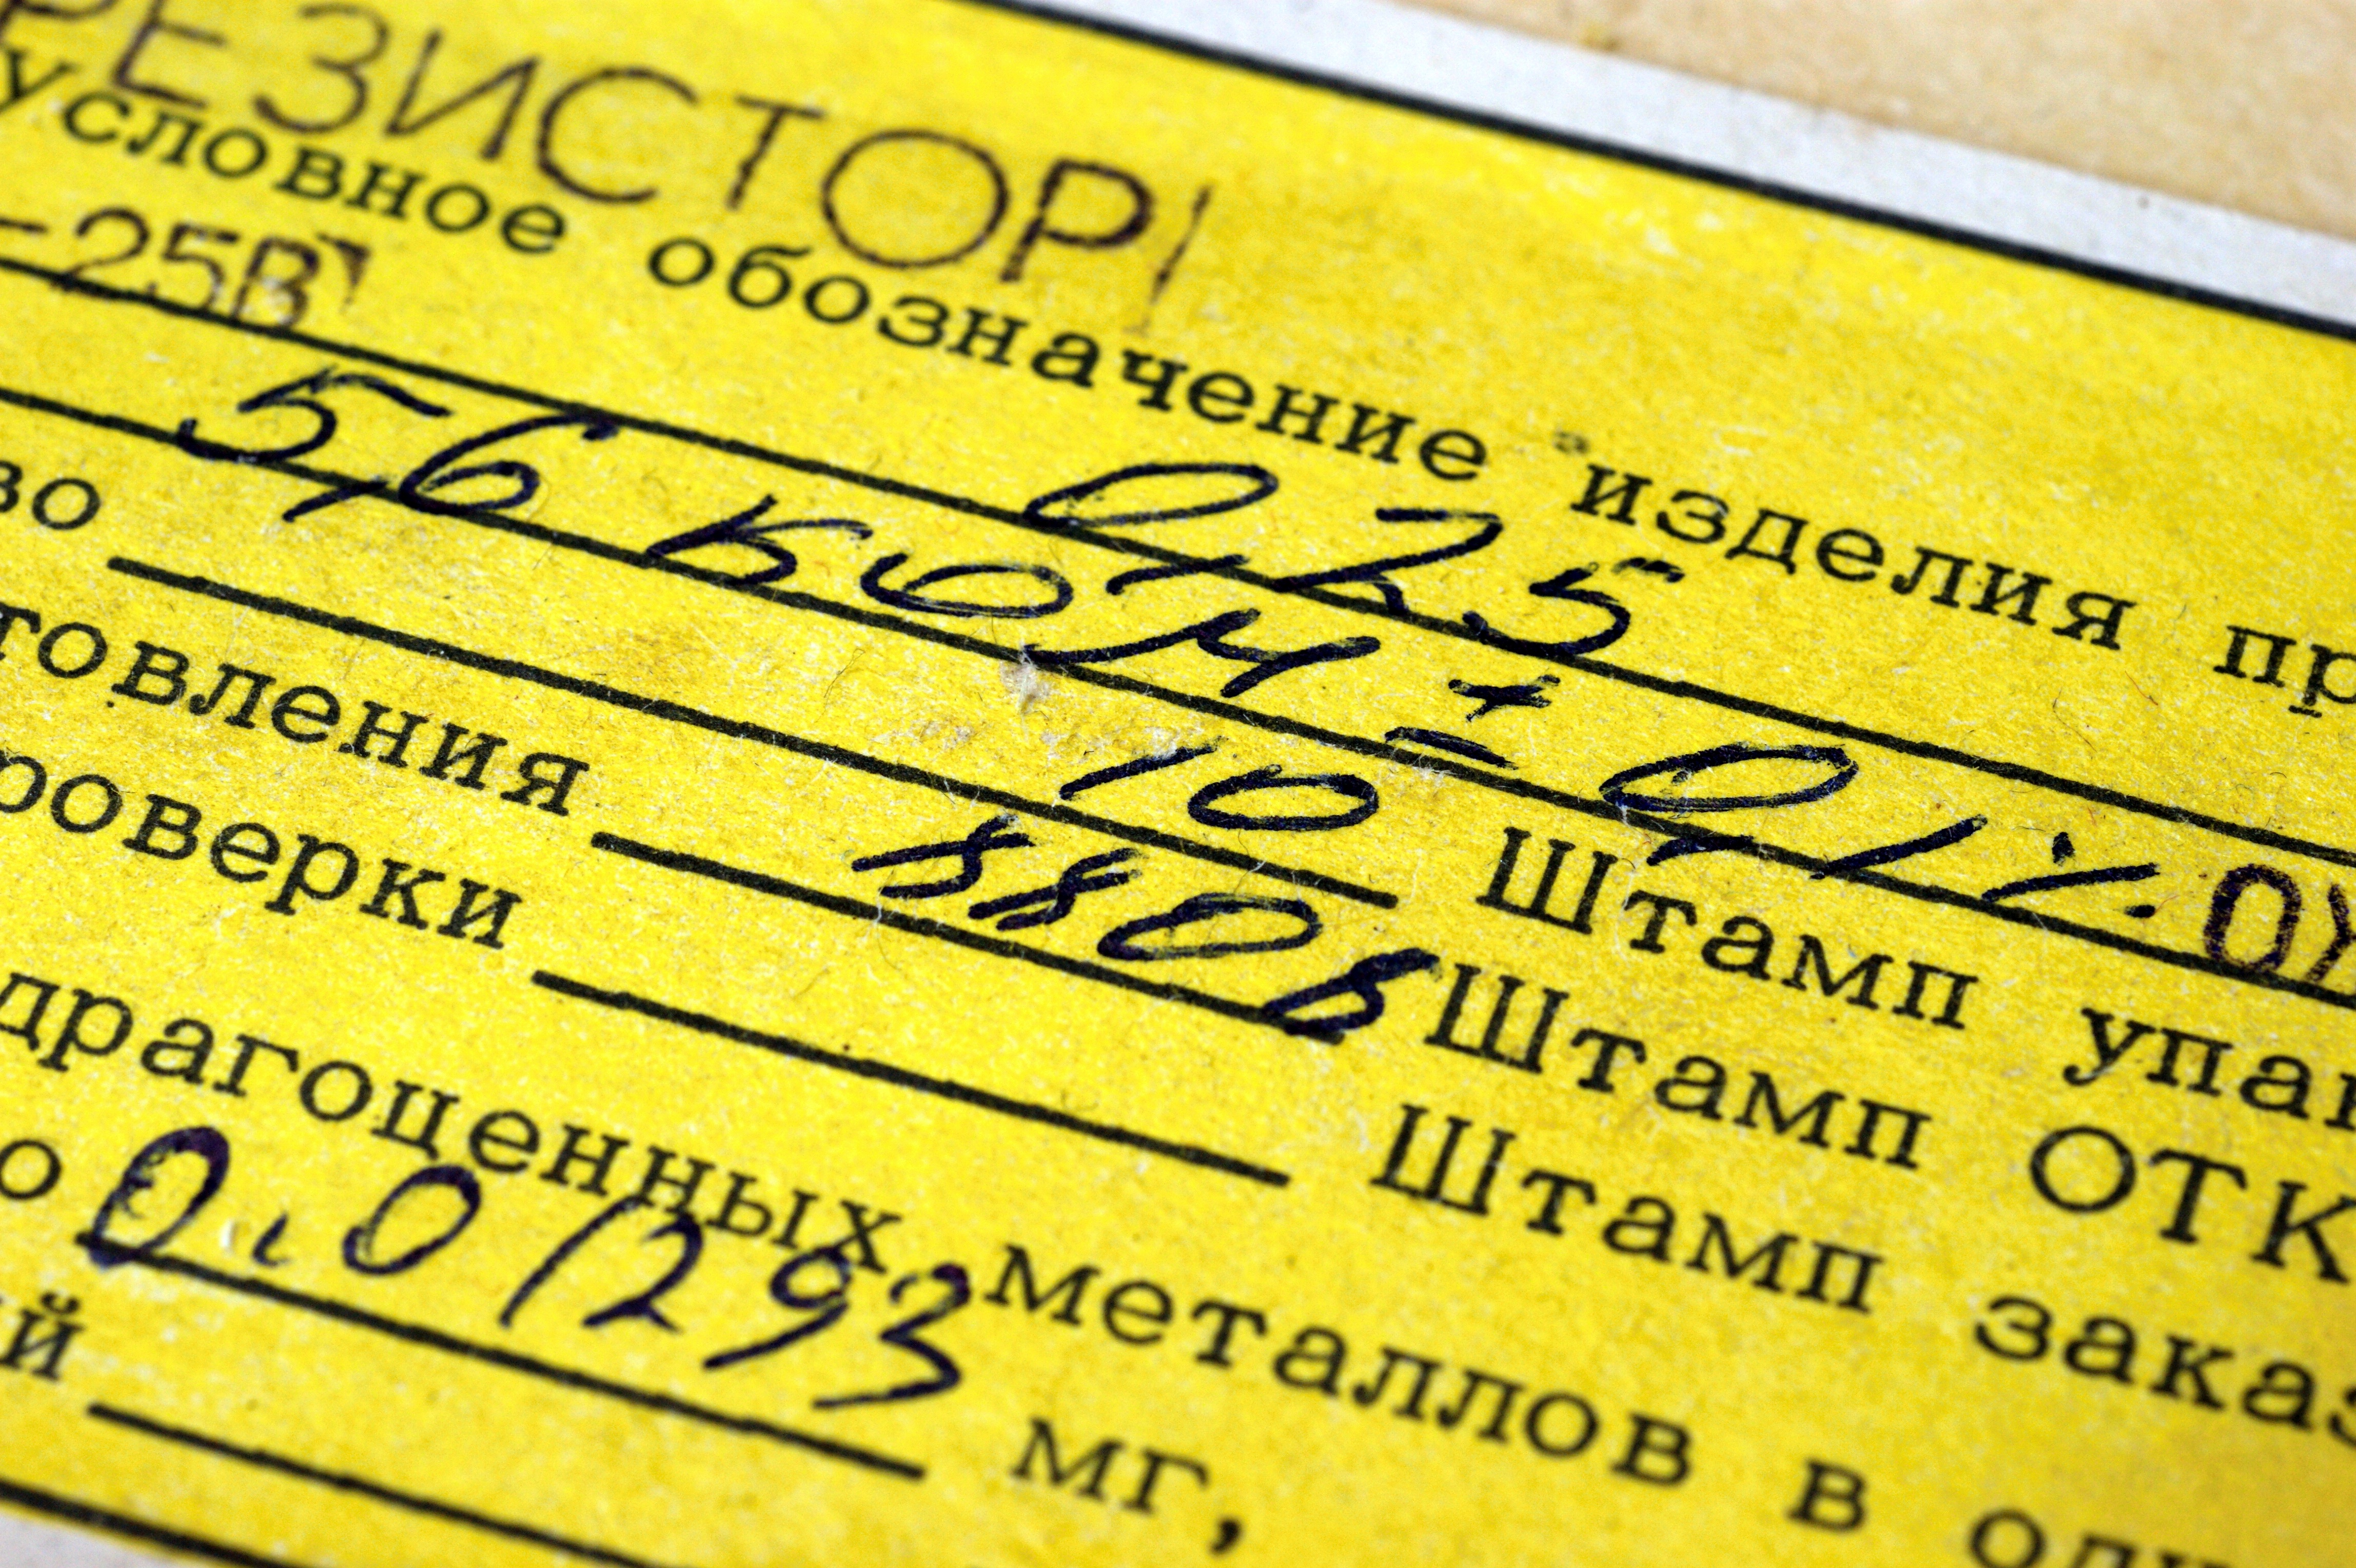 РЕЗИСТОРЫ
условное обозначение изделия пр
-25В
0,25
5,6 кОм ± 0,1%
во 10 Штамп упак
товления 880 Штамп ОТК
роверки Штамп заказ
драгоценных металлов в одн
о 0.01293 мг,
й